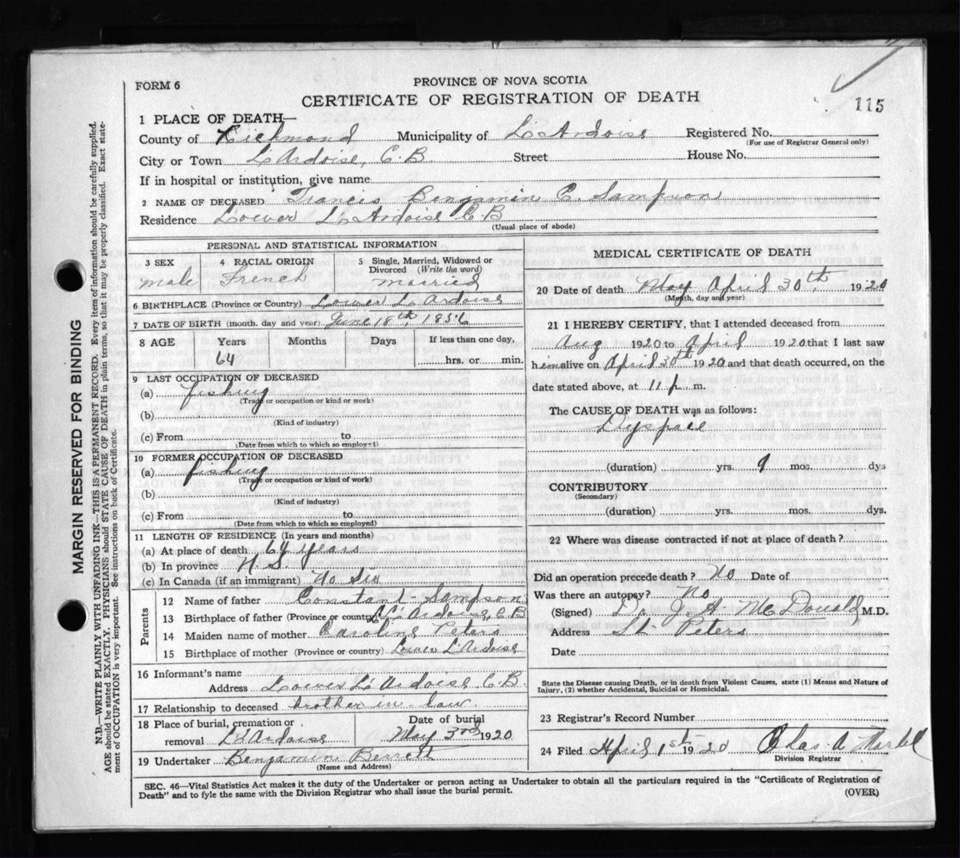 FORM 6
PROVINCE OF NOVA SCOTIA
CERTIFICATE OF REGISTRATION OF DEATH
115
1 PLACE OF DEATH—
County of Richmond Municipality of L'Ardoise Registered No.
(For use of Registrar General only)
City or Town L'Ardoise, C.B. Street House No.
If in hospital or institution, give name
2 NAME OF DECEASED Francis Benjamin C. Sampson
Residence Lower L'Ardoise C B
(Usual place of abode)
MARGIN RESERVED FOR BINDING
N.B.—WRITE PLAINLY WITH UNFADING INK—THIS IS A PERMANENT RECORD. Every item of information should be carefully supplied.
AGE should be stated EXACTLY. PHYSICIANS should STATE CAUSE OF DEATH in plain terms, so that it may be properly classified. Exact state-
ment of OCCUPATION is very important. See instructions on back of Certificate.
PERSONAL AND STATISTICAL INFORMATION
3 SEX 4 RACIAL ORIGIN 5 Single, Married, Widowed or
Divorced (Write the word)
male French married
6 BIRTHPLACE (Province or Country) Lower L'Ardoise
7 DATE OF BIRTH (month, day and year) June 18th, 1856
8 AGE Years Months Days If less than one day,
64 hrs. or min.
9 LAST OCCUPATION OF DECEASED
(a) fishing
(Trade or occupation or kind or work)
(b)
(Kind of industry)
(c) From to
(Date from which to which so employed)
10 FORMER OCCUPATION OF DECEASED
(a) fishing
(Trade or occupation or kind of work)
(b)
(Kind of industry)
(c) From to
(Date from which to which so employed)
11 LENGTH OF RESIDENCE (In years and months)
(a) At place of death 64 years
(b) In province N. S.
(c) In Canada (if an immigrant) No
Parents
12 Name of father Constant Sampson
13 Birthplace of father (Province or country) L'Ardoise, C B
14 Maiden name of mother Caroline Peters
15 Birthplace of mother (Province or country) Lower L'Ardoise
16 Informant's name
Address Lower L'Ardoise C.B.
17 Relationship to deceased brother in law
18 Place of burial, cremation or Date of burial
removal L'Ardoise May 3rd 1920
19 Undertaker Benjamin
(Name and Address)
MEDICAL CERTIFICATE OF DEATH
20 Date of death May April 30th, 1920
(Month, day and year)
21 I HEREBY CERTIFY, that I attended deceased from
Aug 1920 to April 1920 that I last saw
him alive on April 30th 1920 and that death occurred, on the
date stated above, at 11 p. m.
The CAUSE OF DEATH was as follows:
(duration) yrs. 9 mos. dys
CONTRIBUTORY
(Secondary)
(duration) yrs. mos. dys.
22 Where was disease contracted if not at place of death?
Did an operation precede death? No Date of
Was there an autopsy? No
(Signed) J. A. McDonald, M.D.
Address St. Peters
Date
State the Disease causing Death, or in death from Violent Causes, state (1) Means and Nature of
Injury, (2) whether Accidental, Suicidal or Homicidal.
23 Registrar's Record Number
24 Filed April 1st 1920 Chas. A.
Division Registrar
SEC. 46—Vital Statistics Act makes it the duty of the Undertaker or person acting as Undertaker to obtain all the particulars required in the "Certificate of Registration of
Death" and to fyle the same with the Division Registrar who shall issue the burial permit.
(OVER)